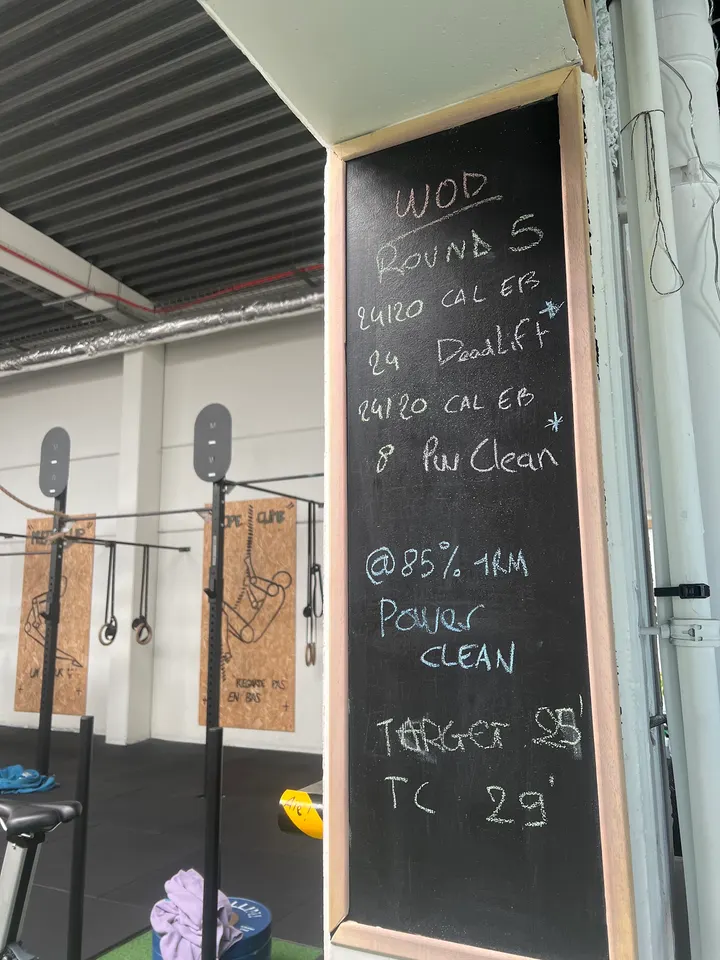 WOD
ROUND 5
24/20 CAL EB
24 DeadLift*
24/20 CAL EB
8 Pw Clean*
@85% 1RM
Power
CLEAN
TARGET 25'
TC 29'
CLIMB
REGARDE PAS
EN BAS